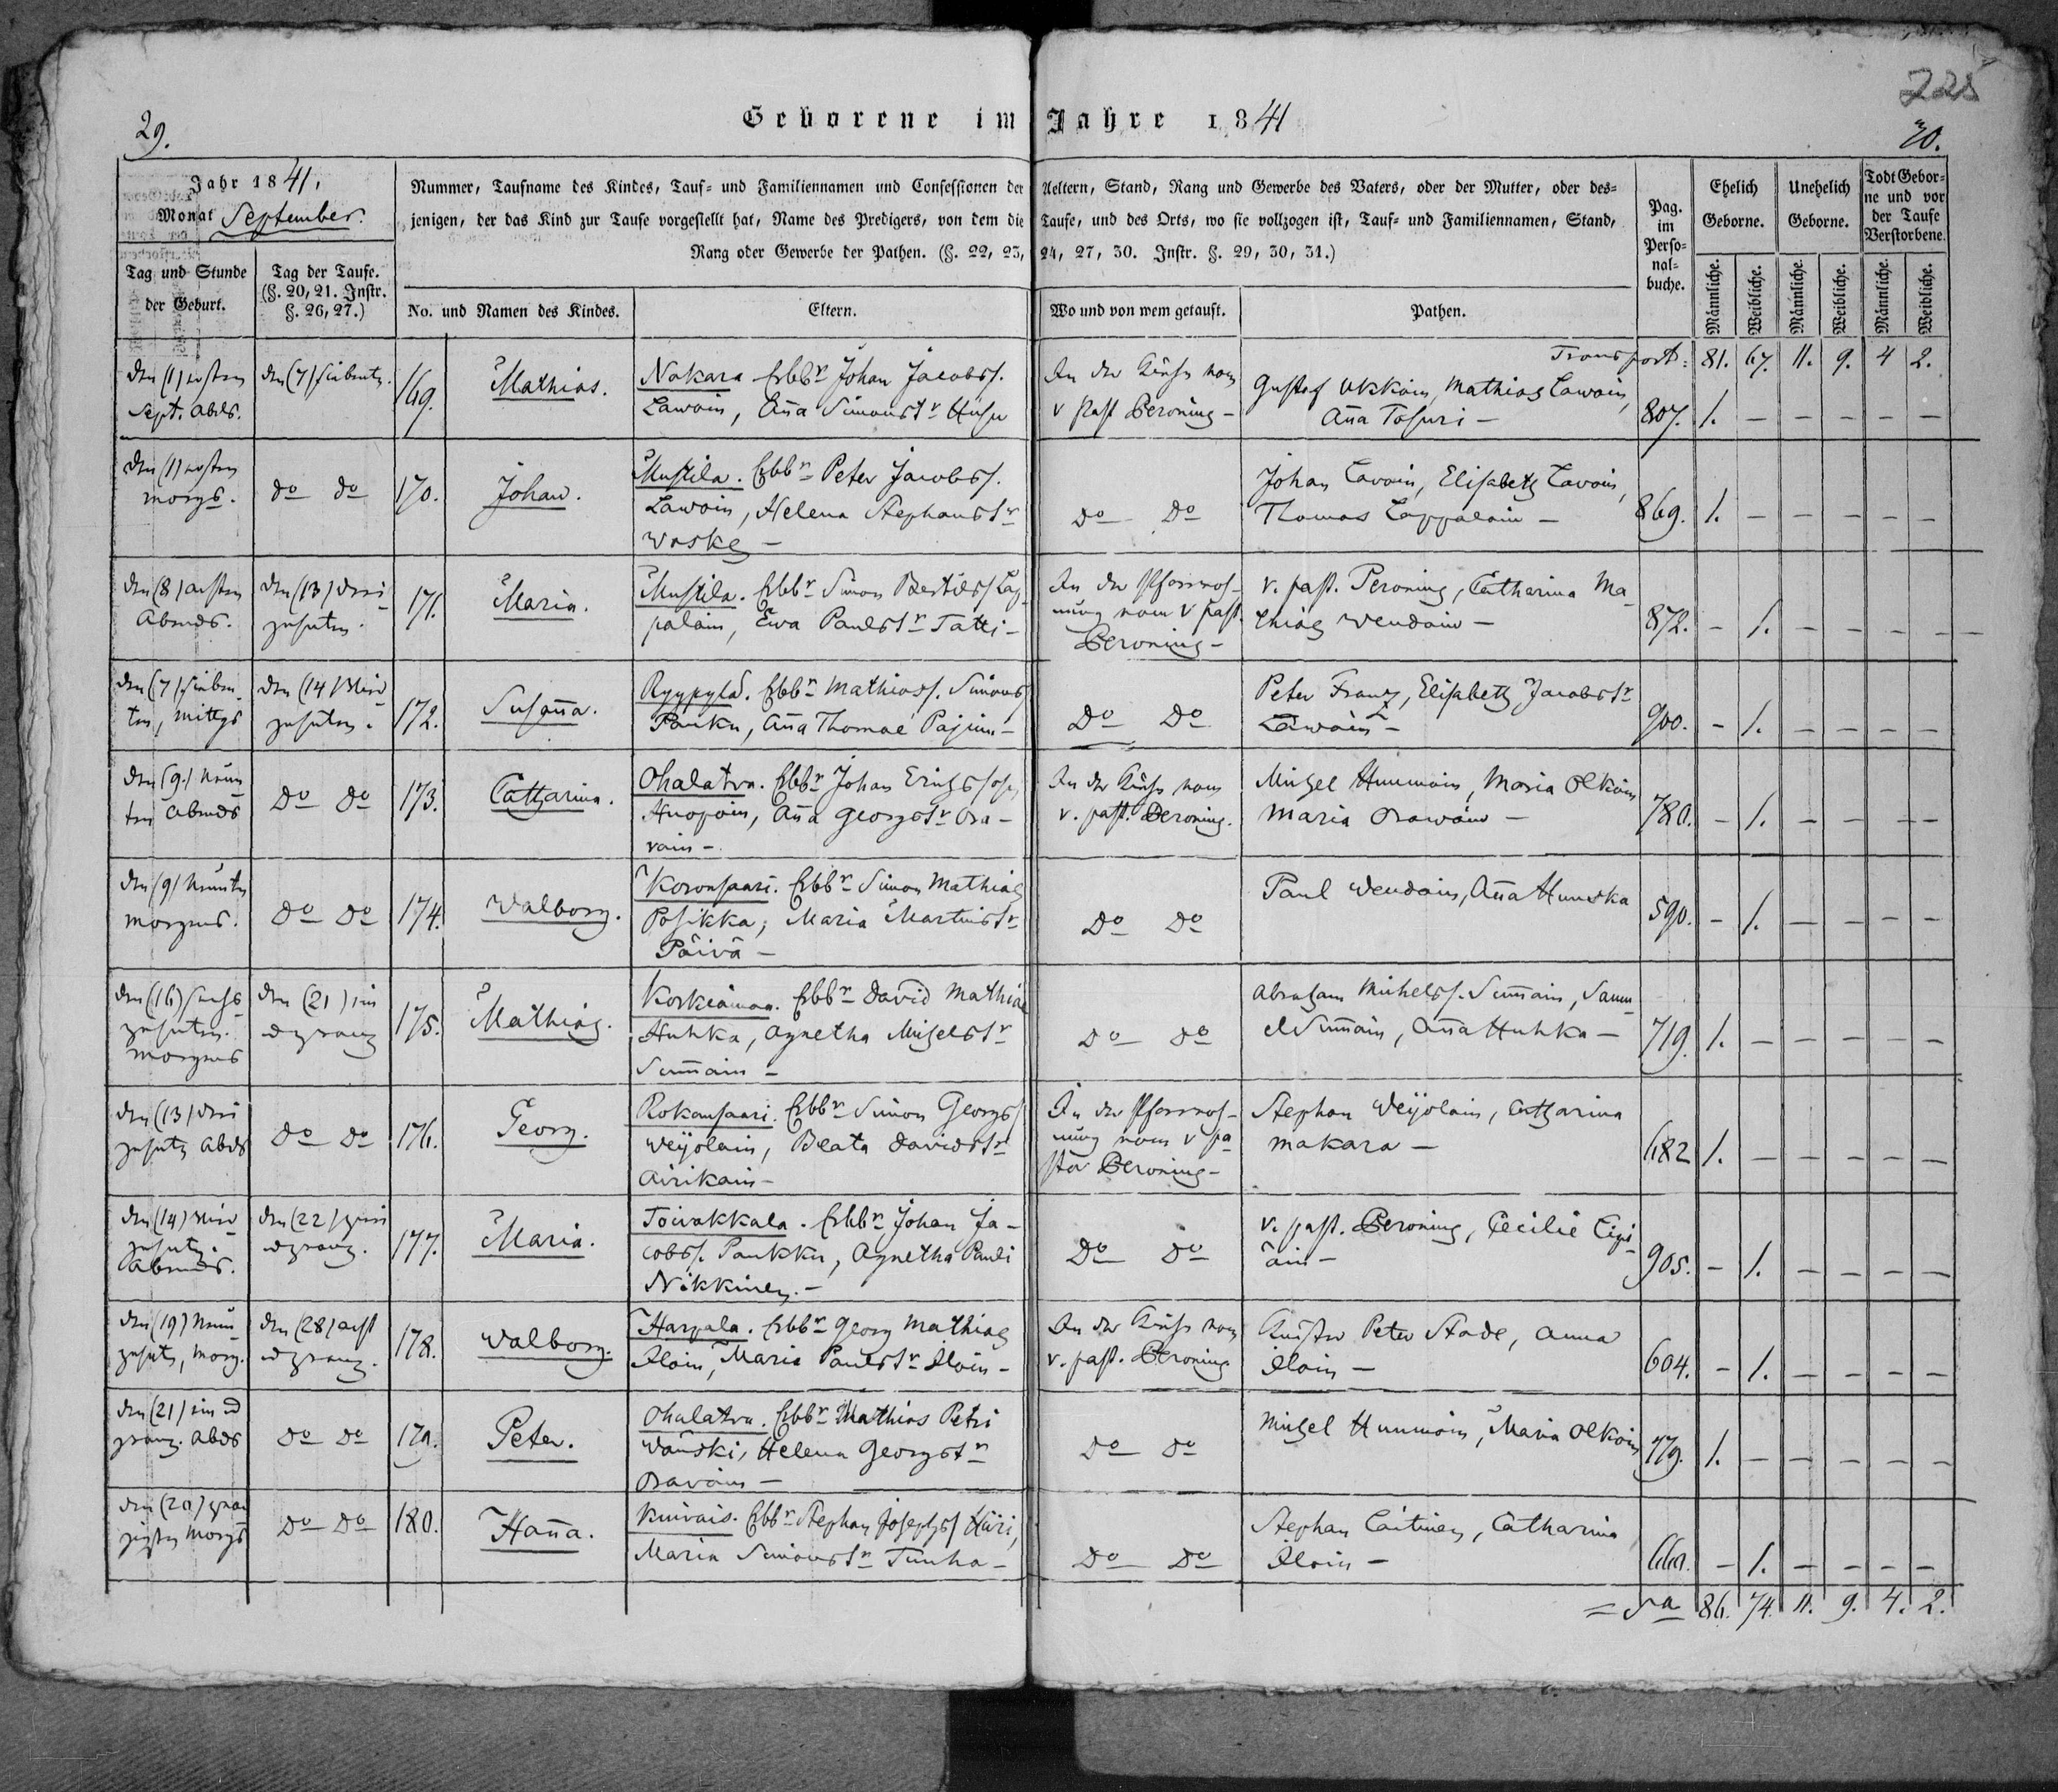 225
29.
Geborene im Jahre 1841
30.
Jahr 1841,
Monat September.
Nummer, Taufname des Kindes, Tauf= und Familiennamen und Confessionen der Aeltern, Stand, Rang und Gewerbe des Vaters, oder der Mutter, oder des=
jenigen, der das Kind zur Taufe vorgestellt hat, Name des Predigers, von dem die Taufe, und des Orts, wo sie vollzogen ist, Tauf= und Familiennamen, Stand,
Rang oder Gewerbe der Pathen. (§. 22, 23, 24, 27, 30. Instr. §. 29, 30, 31.)
Pag.
im
Perso=
nal=
buche.
Ehelich
Geborne.
Unehelich
Geborne.
Todt Gebor=
ne und vor
der Taufe
Verstorbene.
Tag und Stunde
der Geburt.
Tag der Taufe.
(§. 20, 21. Instr.
§. 26, 27.)
No. und Namen des Kindes.
Eltern.
Wo und von wem getauft.
Pathen.
Männliche.
Weibliche.
Männliche.
Weibliche.
Männliche.
Weibliche.
Transport: 81. 67. 11. 9. 4 2.
den (1) ersten
Sept. abds.
den (7) siebnten
169.
Mathias.
Nakara Erbbr Johan Jacobss.
Lawain, Aña Simonstr Husu
In der Kirche vom
v past Peroning –
Gustaf Ukkoin, Mathias Lawain,
Aña Tohuri –
807. 1. – – – – –
den (1) ersten
morgs.
do do
170.
Johan.
Mustila. Erbbr Peter Jacobss.
Lawain, Helena Stephanstr
Waske –
do do
Johan Lavain, Elisabeth Lavain,
Thomas Lappalain –
869. 1. – – – – –
den (8) achten
Abends.
den (13) drei
zehnten.
171.
Maria.
Mustila. Erbbr Simon Bertilss Lap
palain, Ewa Paulstr Tatti –
In der Pfarrwoh–
nung vom v past.
Peroning –
v. past. Peroning, Catharina Ma
thias Wendain –
872. – 1. – – – –
den (7) sieben
ten, mittgs
den (14) vier
zehnten.
172.
Susaña.
Ryypylä. Erbbr Mathiass. Simons
Paukku, Aña Thomae Pajiun –
do do
Peter Franz, Elisabeth Jacobstr
Lawain –
900. – 1. – – – –
den (9) neun
ten Abends
do do
173.
Catharina.
Ohalatva. Erbbr Johan Erichssohn
Huopain, Aña Georgstr Ora –
vain –
In der Kirche vom
v. past. Peroning.
Michel Hummoin, Maria Olkoin
Maria Orawain –
780. – 1. – – – –
den (9) neunten
morgens.
do do
174.
Walborg.
Koronsaari. Erbbr Simon Mathias
Posikka, Maria Martinstr
Päivä –
do do
Paul Wendain, Aña Hunska
590. – 1. – – – –
den (16) sechs
zehnten.
morgens
den (21) ein
u zwanz
175.
Mathias.
Korkeamaa. Erbbr David Mathias
Huhka, Agnetha Michelstr
Sumain –
do do
Abraham Michelss. Sumain, Samu
el Sumain, Aña Huhka –
719. 1. – – – – –
den (13) drei
zehnten abds
do do
176.
Georg.
Rokansaari. Erbbr Simon Georgss
Weijolain, Beata Davidstr
Airikain –
In der Pfarrwoh–
nung vom v pa
stor Peroning –
Stephan Weijolain, Catharina
makara –
682 1. – – – – –
den (14) vier
zehntn.
Abends.
den (22) zwei
u zwanz.
177.
Maria.
Toivakkala. Erbbr Johan Ja –
cobss. Paukku, Agnetha Pauli
Nikkinen. –
do do
v. past. Peroning, Cecilie Lipi
äin –
905. – 1. – – – –
den (19) neun
zehnt, morg.
den (28) acht
u zwanz.
178.
Walborg.
Harpala. Erbbr Georg Mathias
Iloin, Maria Paulstr Iloin –
In der Kirche vom
v. past. Peroning
Küster Peter Stade, Anna
Iloin –
604. – 1. – – – –
den (21) ein u
zwanz. abds
do do
179.
Peter.
Ohalatva. Erbbr Mathias Petri
Wanski, Helena Georgstr
Oravain –
do do
Michel Hummoin, Maria Olkoin
779. 1. – – – – –
den (20) zwan
zigsten morgs
do do
180.
Haña.
Kuivais. Erbbr Stephan Josephss Häri,
Maria Simonstr Tuuha –
do do
Stephan Laitinen, Catharina
Iloin –
660. – 1. – – – –
= Sa 86. 74. 11. 9. 4. 2.